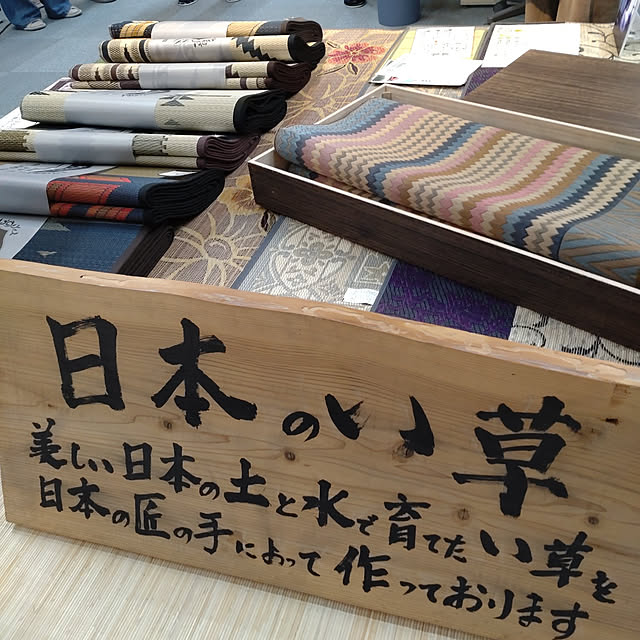 日本のい草
美しい日本の土と水で育てたい草を
日本の匠の手によって作っております